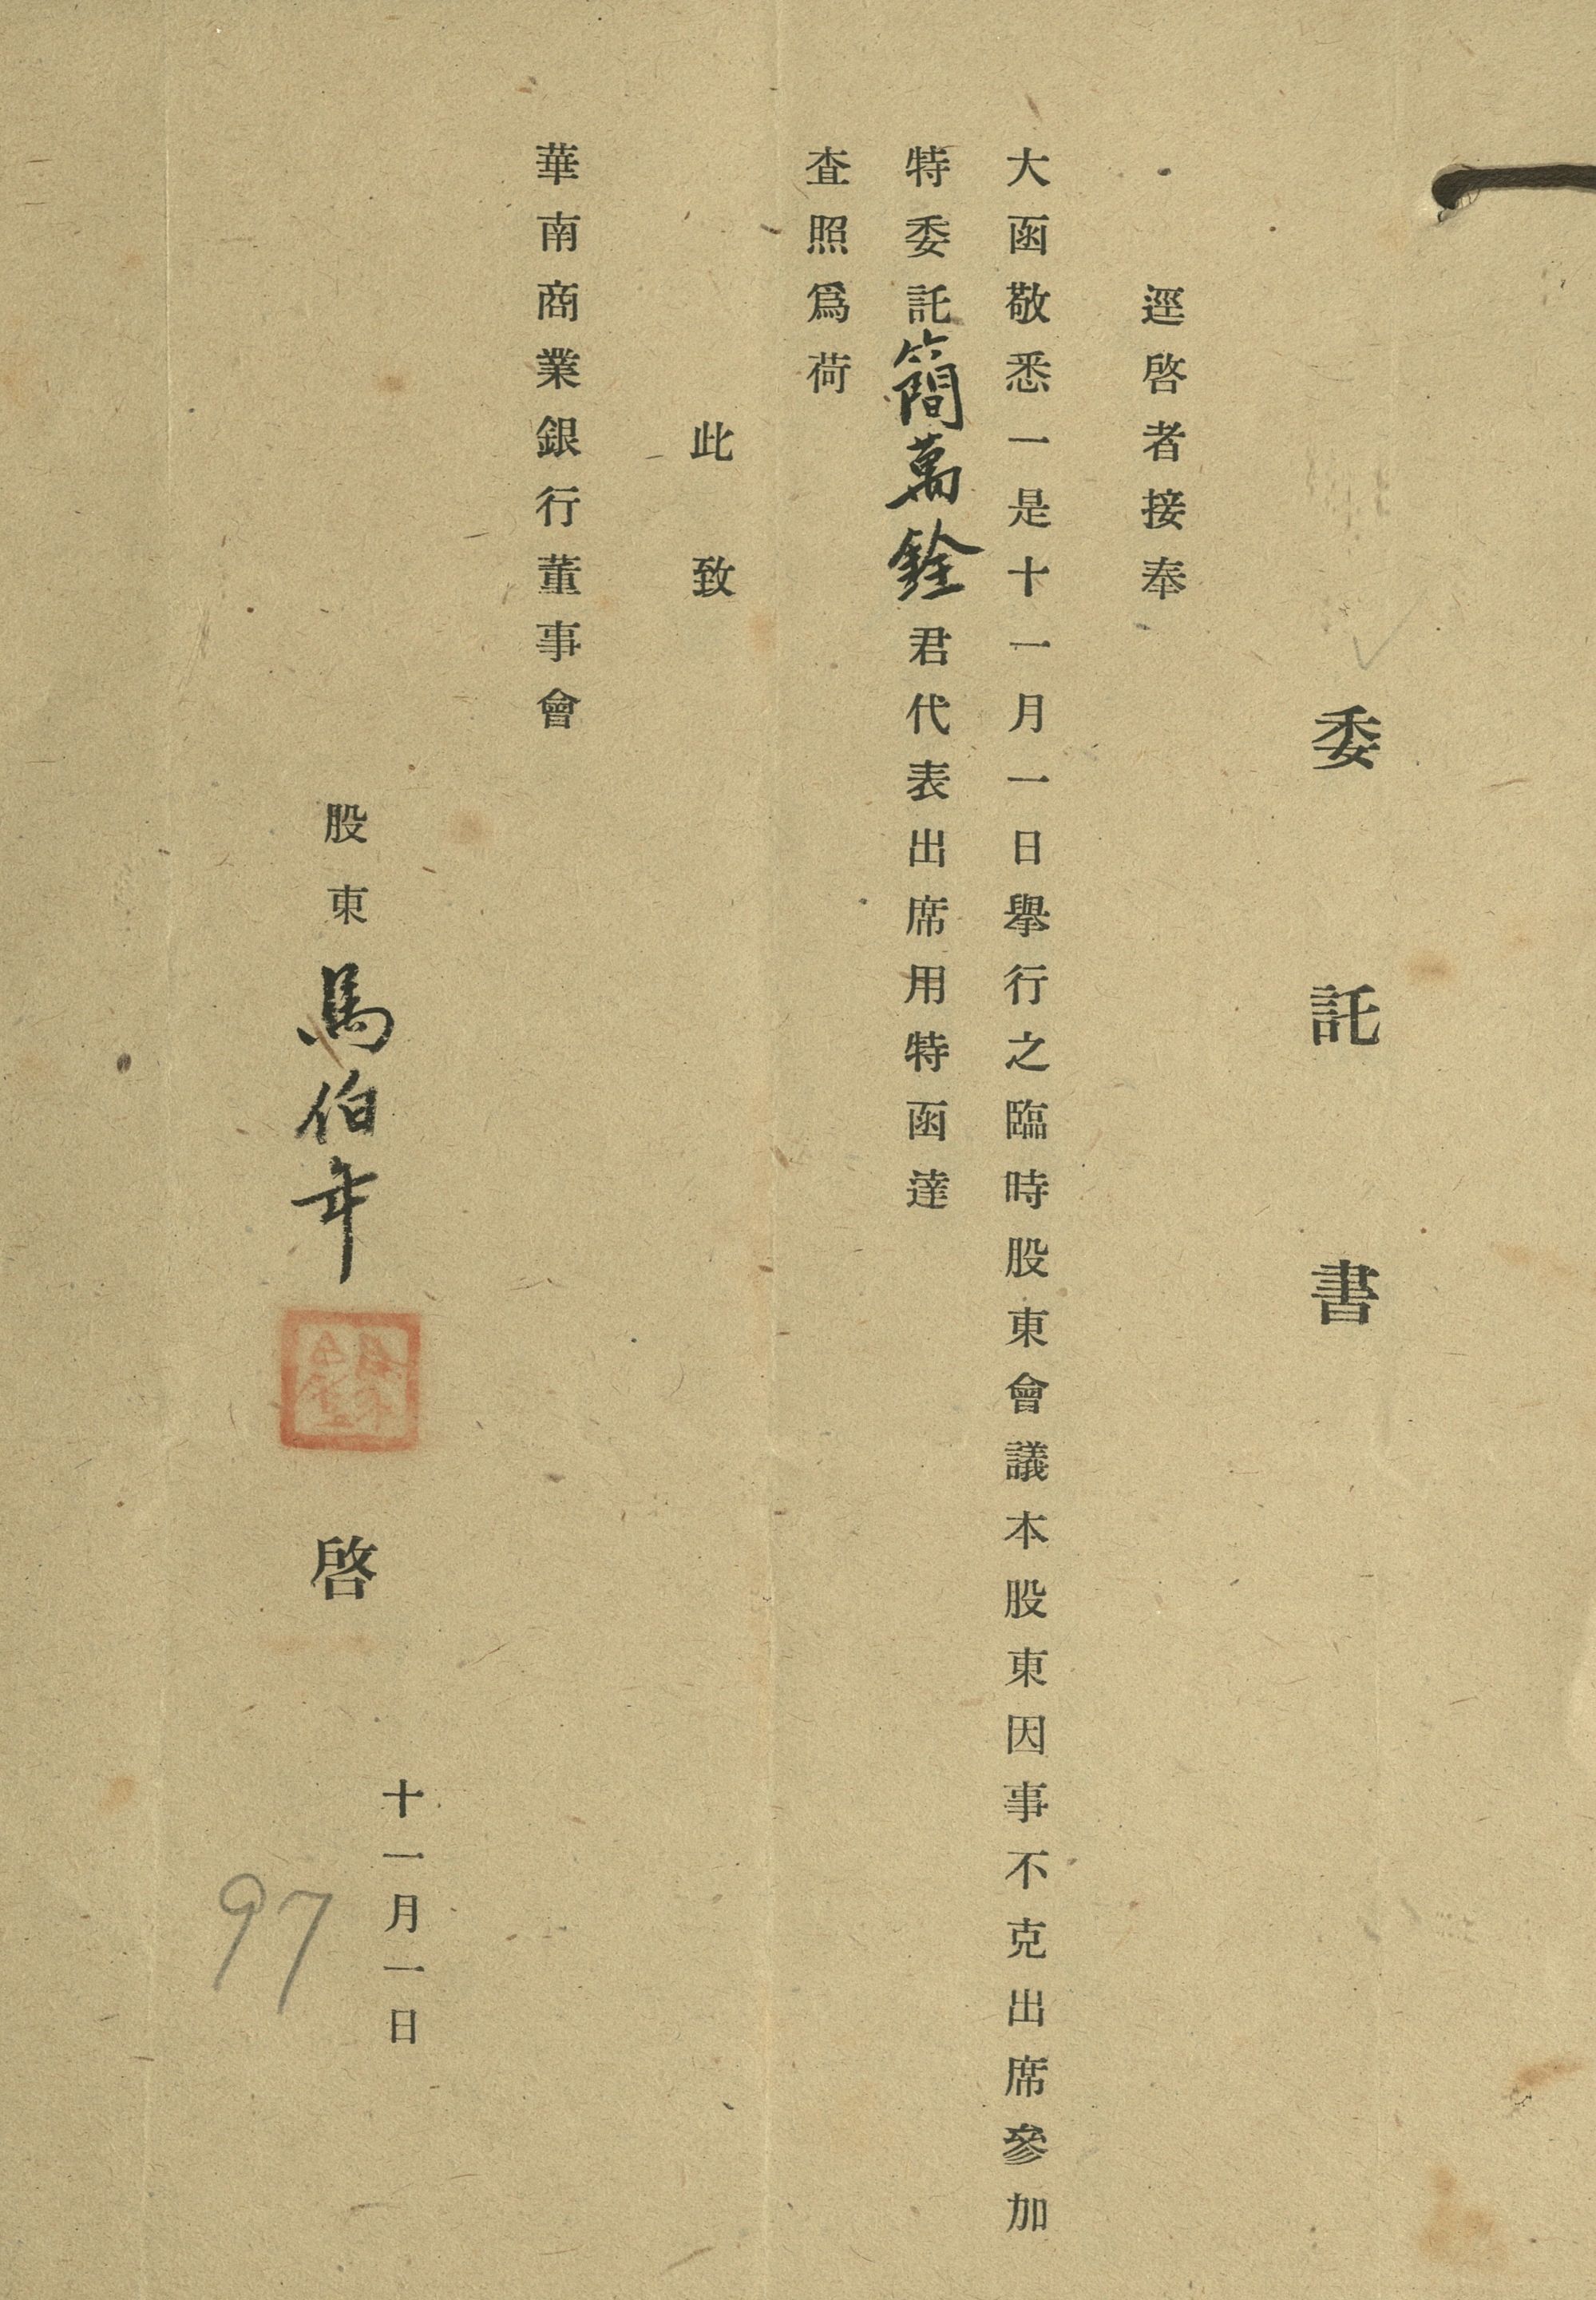 委託書
逕啓者接奉
大函敬悉一是十一月一日舉行之臨時股東會議本股東因事不克出席參加
特委託簡萬銓君代表出席用特函達
査照爲荷
此致
華南商業銀行董事會
股東馬伯年啓
十一月一日
97